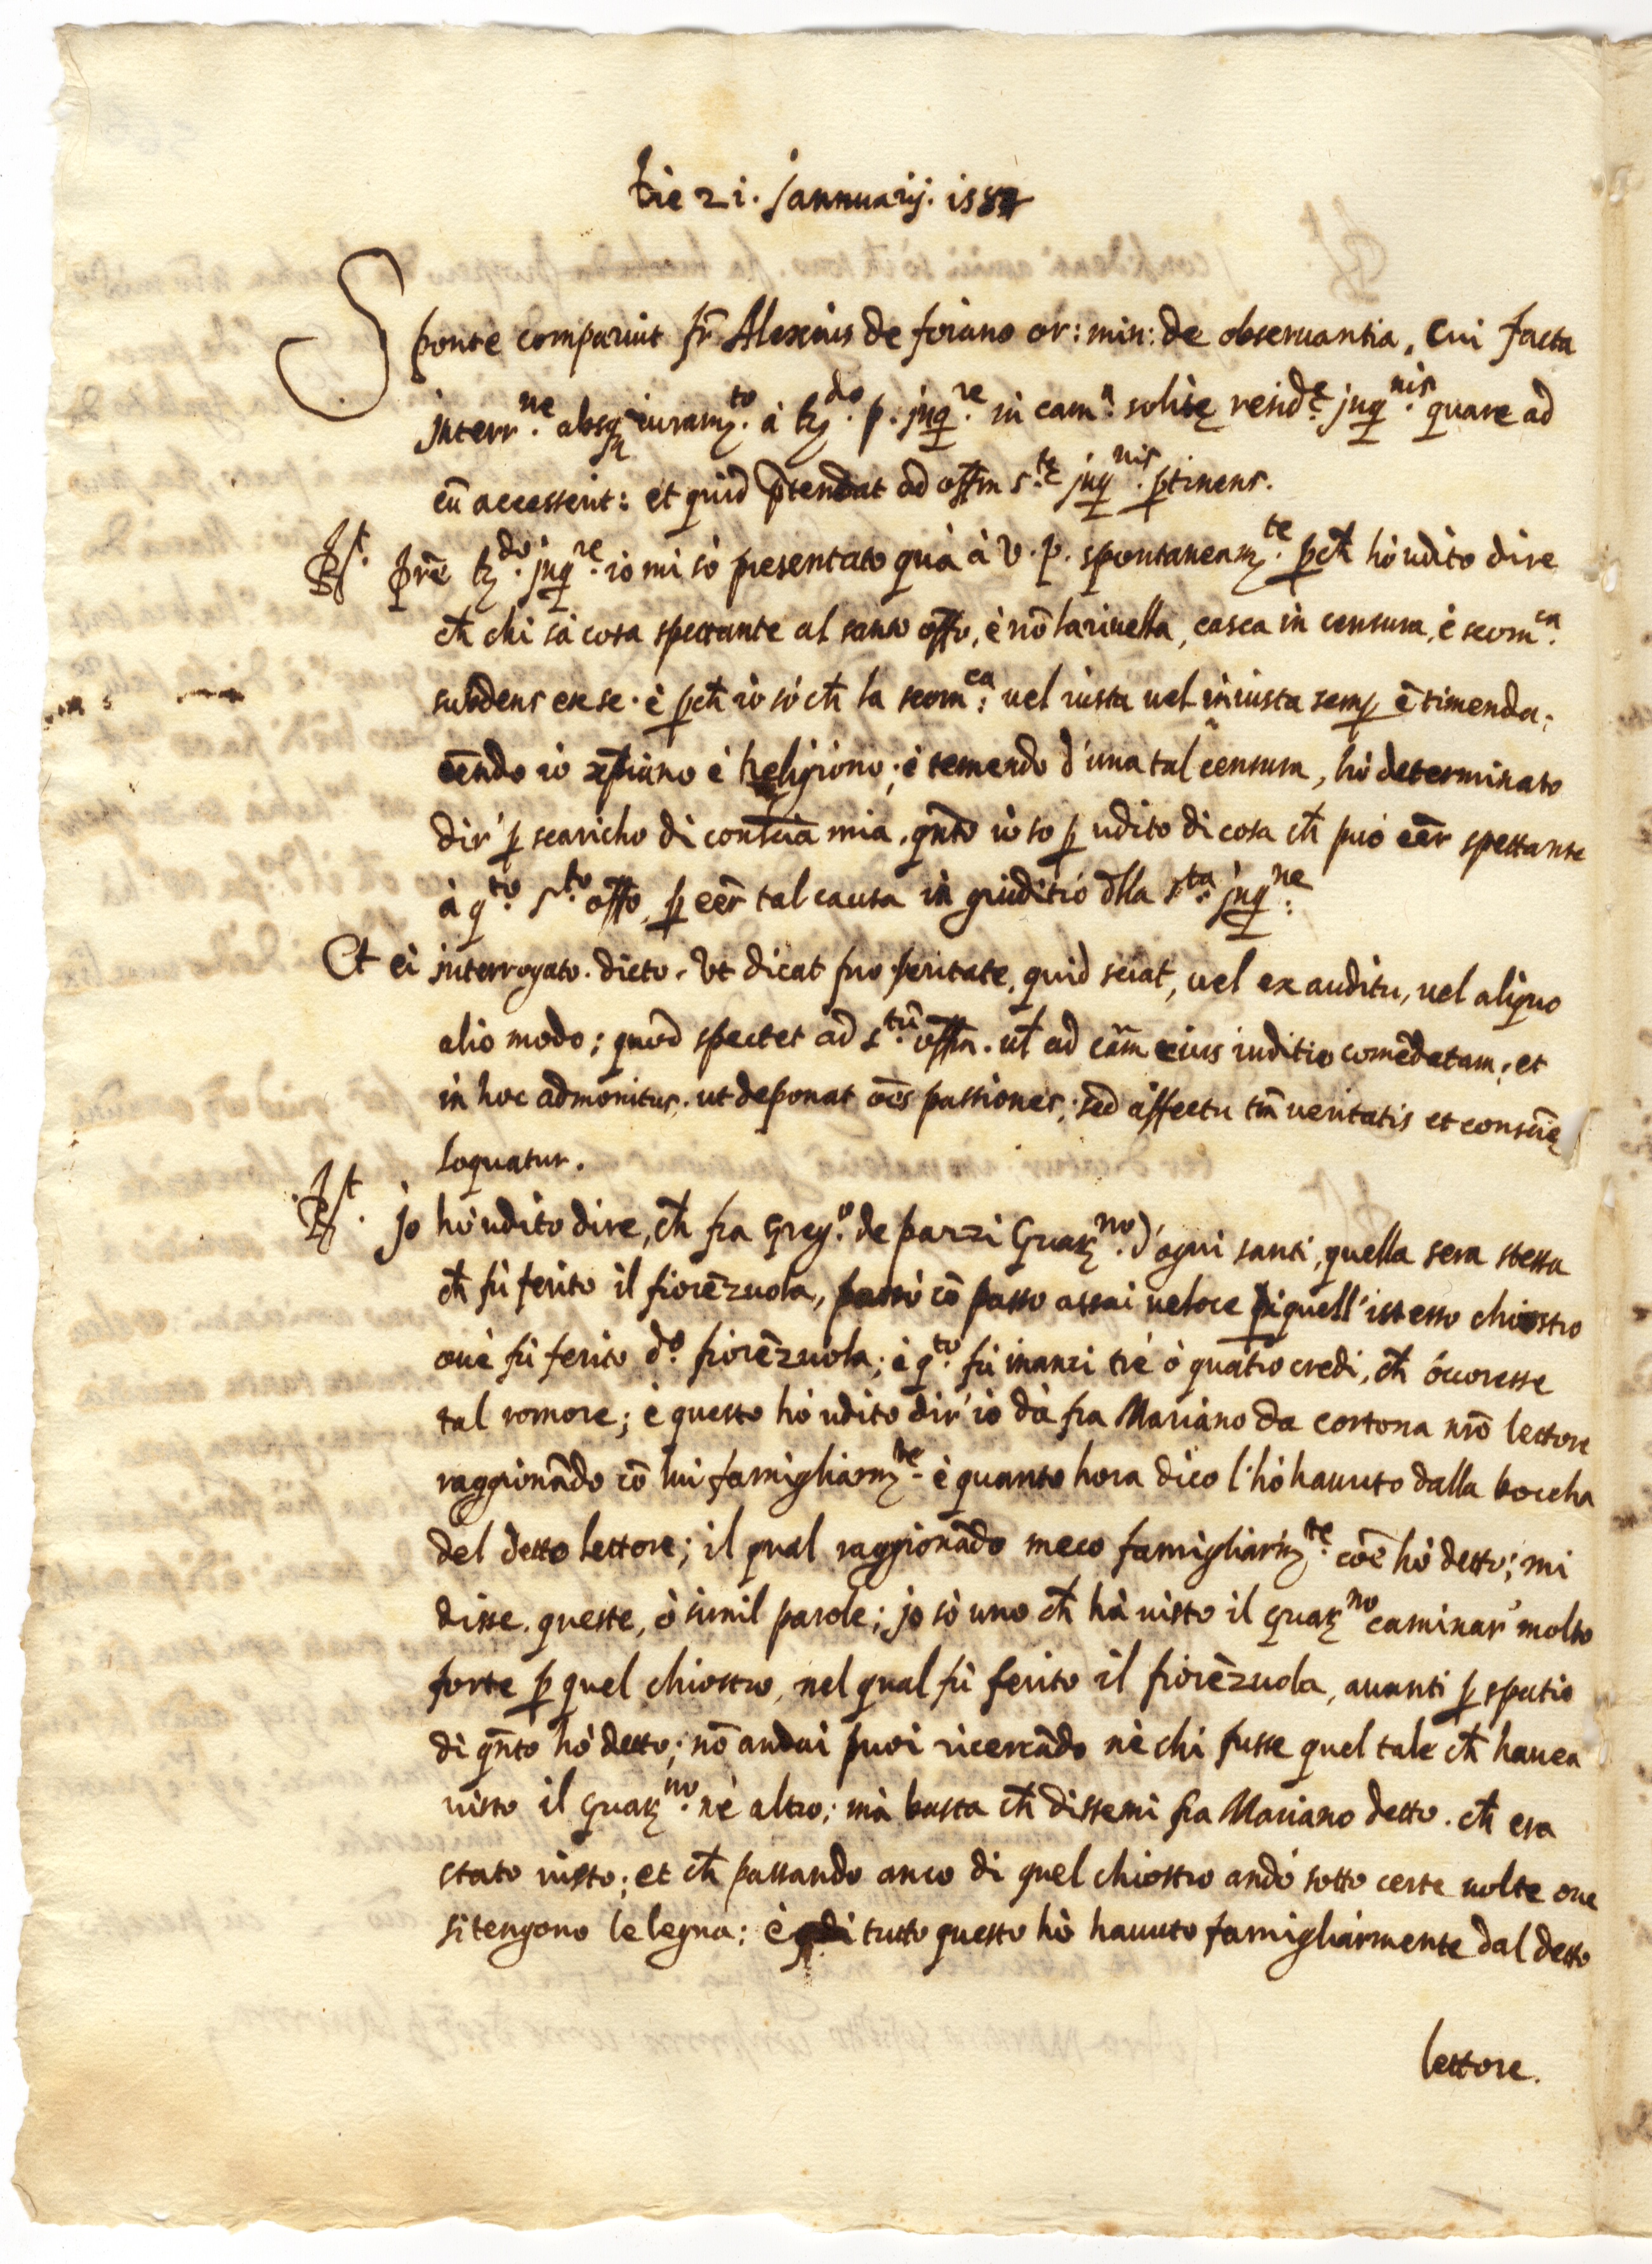 Die 21. Jannuarij. 158
Sponte comparuit fr̃ Alexius de foiano or: min: de obseruantia, cui facta
interr.ne absq iuram.to à R.do p. jnq.re in cam.a solitę resid.ę jnq.nis quare ad
eũ accesserit: et quid p̃tendat ad offm s.tę jnq.nis ptinens.
Rt. pr̃e R.do jnq.re io mi sò presentato quà à V. p. spontaneam.te pch̃ hò udito dire
ch̃ chi sà cosa spettante al santo offo, è nõ la riuella, casca in censura, è scom.ca
subdens ex se. è pch̃ io sò ch̃ la scom.ca: uel iusta uel iniusta semp ẽ timenda;
eẽndo io xp̃iano è Religiono; è temendo d'una tal censura, hò determinato
dir' p scaricho di consc̃ia mia, qñto io so p udito di cosa ch̃ può eẽr spettante
à q.to s.to offo, p eẽr tal causa in giuditio d̃lla s.ta jnq.ne
Et ei interrogato. dicto. Vt dicat pro ueritate, quid sciat, uel ex auditu, uel aliquo
alio modo; quod spectet ad s.tũ offm. ul̃ ad cãm eius iuditio comẽdatam; et
in hoc admonitus. ut deponat oẽs passiones; sed affectu tm̃ ueritatis et consciẽ
loquatur.
Rt. jo hò udito dire, ch̃ fra Greg.o de pazzi Guar.no d'ogni santi, quella sera stessa
ch̃ fù ferito il fiorẽzuola, passò cõ passo assai ueloce p quell' istesso chiostro
oue fù ferito d.o fiorẽzuola; è q.to fù inanzi tré ò quatro credi, ch̃ óccoresse
tal romore; è questo hò udito dir' io dà fra Mariano da cortona nr̃o lettore
raggionãdo cõ lui famigliarm.te è quanto hora dico l'hò hauuto dalla boccha
del detto lettore; il qual raggionãdo meco famigliarm.te cõe hò detto; mi
disse. queste, ò simil parole; jo sò uno ch̃ hà uisto il Guar.no caminar' molto
forte p quel chiostro, nel qual fù ferito il fiorẽzuola, auanti p spatio
di qñto hò detto; nõ andai puoi ricercãdo nè chi fusse quel tale ch̃ hauea
uisto il Guar.no nè altro; mà basta ch̃ dissemi fra Mariano detto. ch̃ era
stato uisto; et ch̃ passando anco di quel chiostro andò sotto certe uolte oue
si tengono le legna; è tutto questo hò hauuto famigliarmente dal detto
lettore.